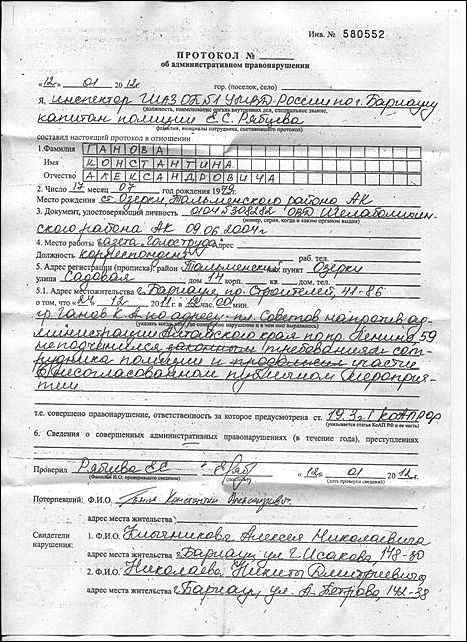 Инв. № 580552
ПРОТОКОЛ №
об административном правонарушении
«12» 01 2012г. гор. (поселок, село)
Я, инспектор ШАЗ ОБ №1 УМВД России по г. Барнаулу
(должность, наименование органа внутренних дел, специальное звание,
капитан полиции Е.С. Рябцева
фамилия, инициалы сотрудника, составившего протокол)
составил настоящий протокол в отношении
1.Фамилия ГАНОВА
Имя КОНСТАНТИНА
Отчество АЛЕКСАНДРОВИЧА
2. Число 17 месяц 07 год рождения 1979
Место рождения ст. Озерки, Тальменского района АК
3. Документ, удостоверяющий личность 0104 5308282 ОВД Шелаболихин-
(номер, серия, когда и каким органом выдан)
ского района АК 09.06.2004г
4. Место работы газета "Голос труда" Адрес
Должность корреспондент раб. тел.
5. Адрес регистрации (прописка) район Тальменский пункт Озерки
улица Садовая дом 14 корп. кв. дом. тел.
5.1. Адрес местожительства г Барнаул, пр. Строителей, 41-86
о том, что «24» 12 2011 г. в 12 час. 00 мин.
гр. Ганов К.А по адресу: пл. Советов напротив ад-
министрации Алтайского края по пр. Ленина, 59
(указать когда, где совершено нарушение и в чем оно выразилось)
неподчинился законным требованиям сот-
рудника полиции и продолжил участие
в несогласованном публичном мероприя-
тии
т.е. совершено правонарушение, ответственность за которое предусмотрена ст. 19.3 ч1 КоАП РФ
(указывается статья КоАП РФ и ее часть)
6. Сведения о совершенных административных правонарушениях (в течение года), преступлениях
Проверил Рябцева ЕС «12» 01 2012 г.
(Фамилия И.О. проверившего сведения) (подпись) (дата проверки сведений)
Потерпевший: Ф.И.О. Константин Александрович
адрес места жительства
Свидетели 1. Ф.И.О. Ключникова Алексея Николаевича
нарушения: адрес места жительства г. Барнаул, ул. Г. Исакова, 148-30
2. Ф.И.О. Николаева Никиты Дмитриевича
адрес места жительства г Барнаул, ул. А. Петрова 142-38